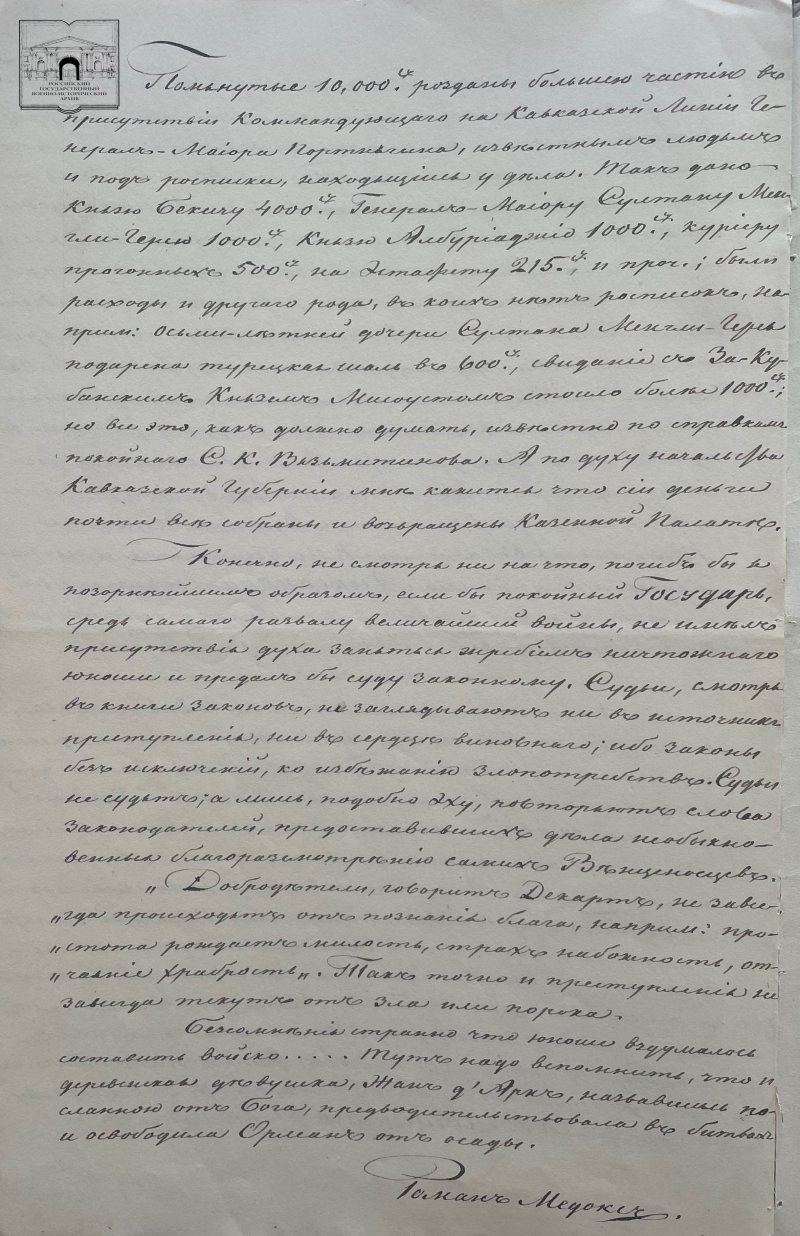 РОССИЙСКИЙ
ГОСУДАРСТВЕННЫЙ
ВОЕННО-ИСТОРИЧЕСКИЙ
АРХИВ
Помянутые 10,000. розданы большею частію въ
присутствіи Коммандующаго на Кавказской Линіи Ге-
нералъ-Маіора Портнягина, извѣстнымъ людямъ
и подъ росписки, находящіясь у дѣла. Такъ дано
Князю Бековичу 4000., Генералъ-Маіору Султану Мен-
гли-Герею 1000., Князю Алдуріадгію 1000., курiеру
прогонныхъ 500., на Эстафету 215., и проч.; были
расходы и другаго рода, въ коихъ нѣтъ росписокъ, на-
прим: осьми-лѣтней дочери Султана Менгли-Герея
подарена турецкая шаль въ 600., свиданіе съ За-Ку-
банскимъ Княземъ Мисоустомъ стоило болѣе 1000.;
но все это, какъ должно думать, извѣстно по справкамъ
покойнаго С. К. Вязьмитинова. А по духу начальства
Кавказской Губерніи мнѣ кажется что сіи деньги
почти всѣ собраны и возвращены Казенной Палатѣ.
Конечно, не смотря ни на что, погибъ бы я
позорнѣйшимъ образомъ, если бы покойный Государь,
средь самаго развалу величайшей войны, не имѣлъ
присутствія духа заняться жребіемъ ничтожнаго
юноши и предалъ бы суду законному. Судьи, смотря
въ книги законовъ, не заглядываютъ ни въ источники
преступленія, ни въ сердце виновнаго; ибо законы
безъ исключеній, ко избѣжанію злопотребствъ. Судьи
не судятъ; а лишь, подобно Эху, повторяютъ слова
Законодателей, предоставившихъ дѣла необыкно-
венныя благоразсмотрѣнію самихъ Вѣнценосцевъ.
„Добродѣтели, говоритъ Декартъ, не всег-
„гда происходятъ отъ познанія блага, наприм: про-
„стота рождаетъ милость, страхъ набожность, от-
„чаяніе храбрость„. Такъ точно и преступленія не
завсегда текутъ отъ зла или порока.
Безсомнѣнія странно что юноше вздумалось
составить войско..... Тутъ надо вспомнить, что и
деревенская дѣвушка, Жанъ д'Аркъ, назвавшись по-
сланною отъ Бога, предводительствовала въ битвахъ
и освободила Орлеанъ отъ осады.
Романъ Медоксъ.